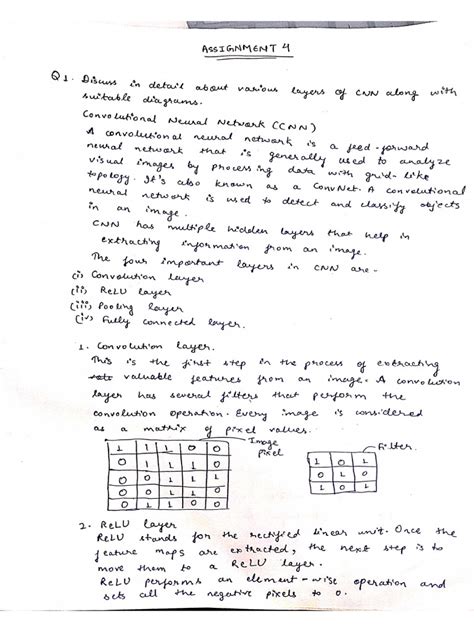 ASSIGNMENT 4
Q1. Discuss in detail about various layers of CNN along with
suitable diagrams.
Convolutional Neural Network (CNN)
A convolutional neural network is a feed-forward
neural network that is generally used to analyze
visual images by processing data with grid-like
topology. It's also known as a ConvNet. A convolutional
neural network is used to detect and classify objects
in an image.
CNN has multiple hidden layers that help in
extracting information from an image.
The four important layers in CNN are-
(i) Convolution layer
(ii) ReLU layer
(iii) Pooling layer
(iv) Fully connected layer.
1. Convolution layer.
This is the first step in the process of extracting
valuable features from an image. A convolution
layer has several filters that perform the
convolution operation. Every image is considered
as a matrix of pixel values.
Image
pixel
Filter
1 1 1 0 0
0 1 1 1 0
0 0 1 1 1
0 0 1 1 0
0 1 1 0 0
1 0 1
0 1 0
1 0 1
2. ReLU layer
ReLU stands for the rectified linear unit. Once the
feature maps are extracted, the next step is to
move them to a ReLU layer.
ReLU performs an element-wise operation and
sets all the negative pixels to 0.